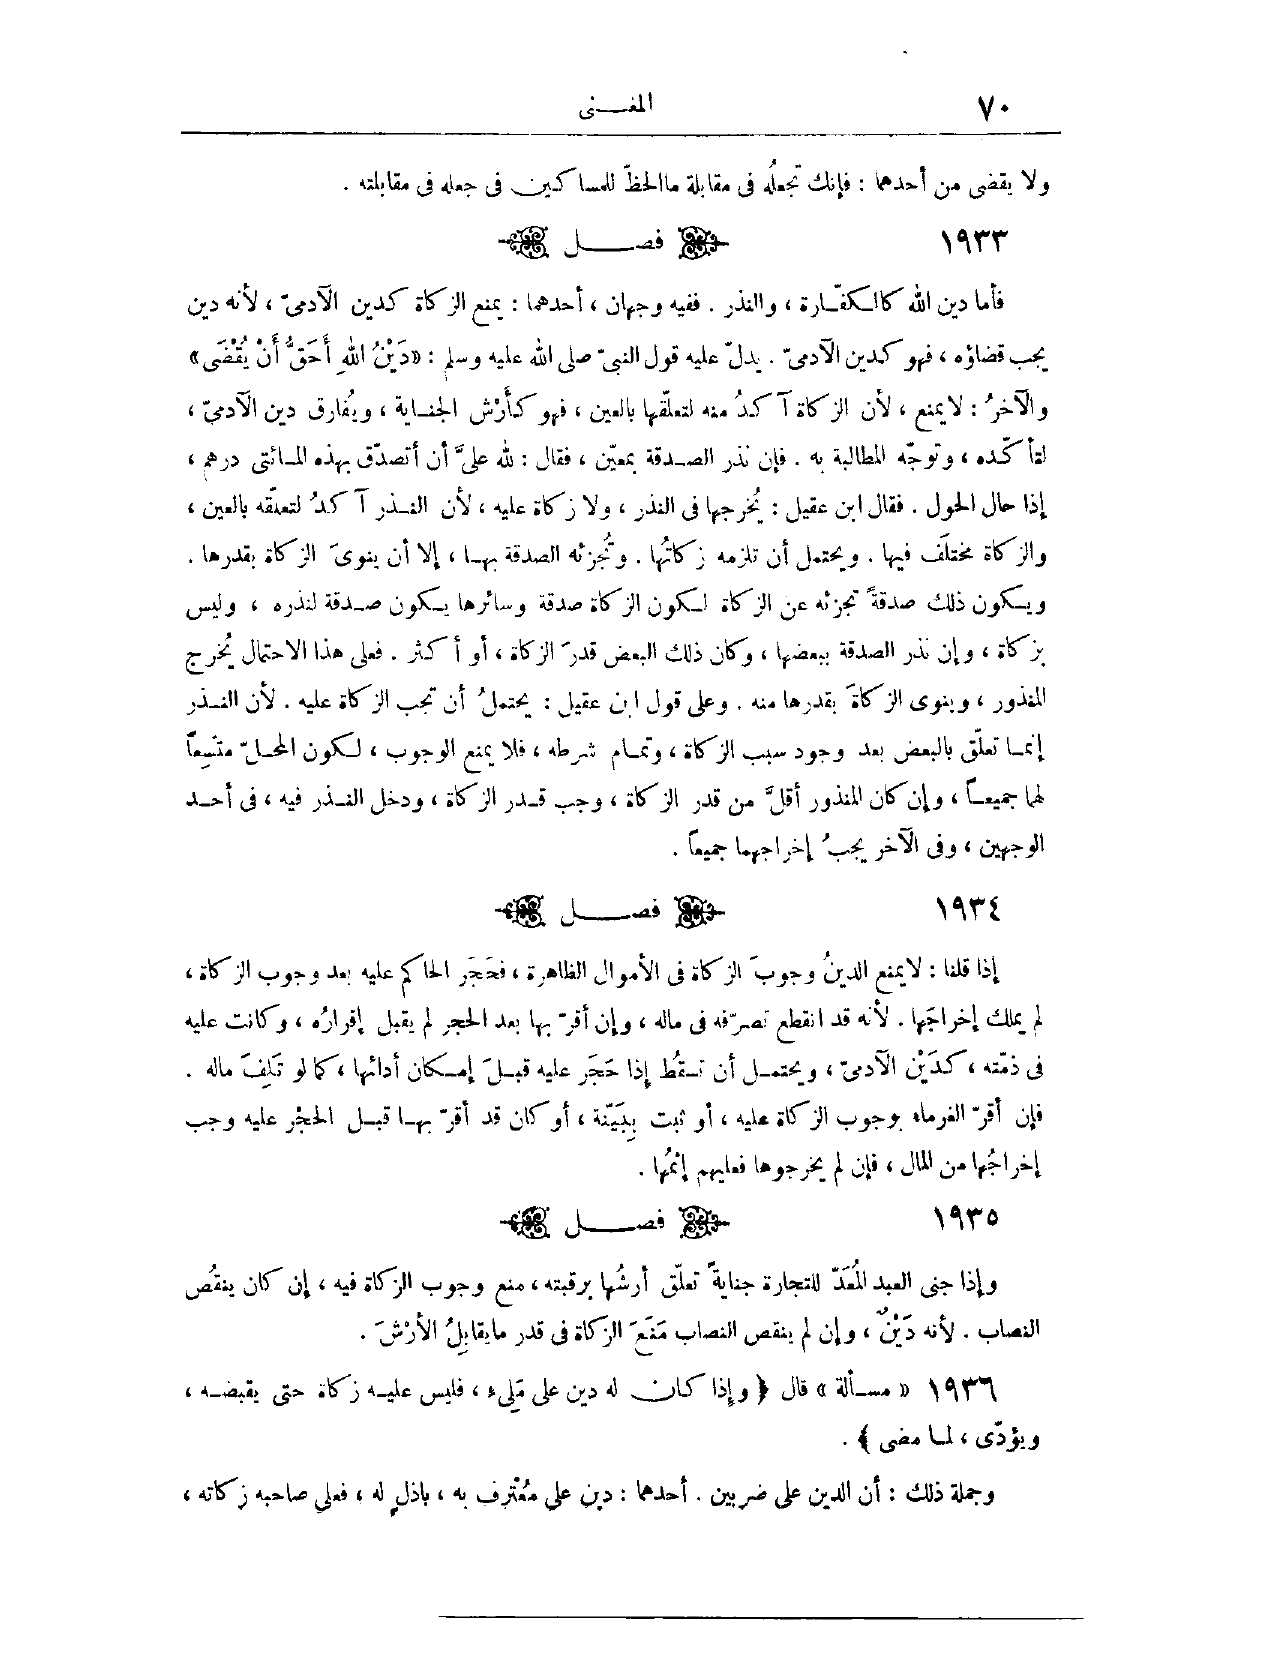 ٧٠
المغـــنى
ولا يقضى من أحدهما : فإنك تجعلُه فى مقابلة ماالحظّ للمساكين فى جعله فى مقابلته .
١٩٣٣
فصـــل
فأما دين الله كالكفّارة ، والنذر . ففيه وجهان ، أحدهما : يمنع الزكاة كدين الآدمىّ ، لأنه دين
يجب قضاؤه ، فهو كدين الآدمىّ . يدلّ عليه قول النبىّ صلى الله عليه وسلم : «دَيْنُ اللهِ أَحَقُّ أَنْ يُقْضَى»
والآخرُ : لايمنع ، لأن الزكاة آكدُ منه لتعلّقها بالعين ، فهو كأَرْش الجنـاية ، ويُفارق دين الآدمىّ ،
لتأكّده ، وتوجّه المطالبة به . فإن نذر الصـدقة بمعيّن ، فقال : لله علىَّ أن أتصدّق بهذه المـائتى درهم ،
إذا حال الحول . فقال ابن عقيل : يُخرجها فى النذر ، ولا زكاة عليه ، لأن النـذر آكدُ لتعلّقه بالعين ،
والزكاة مختلَف فيها . ويحتمل أن تلزمه زكاتُها . وتُجزئه الصدقة بهـا ، إلا أن ينوىَ الزكاة بقدرها .
ويكون ذلك صدقةً تجزئه عن الزكاة لكون الزكاة صدقة وسائرها يـكون صـدقة لنذره ، وليس
بزكاة ، وإن نذر الصدقة ببعضها ، وكان ذلك البعض قدرَ الزكاة ، أو أكثر . فعلى هذا الاحتمال يُخرج
المنذور ، وينوى الزكاةَ بقدرها منه . وعلى قول ابن عقيل : يحتملُ أن تجب الزكاة عليه . لأن النـذر
إنمـا تعلّق بالبعض بعد وجود سبب الزكاة ، وتمـام شرطه ، فلا يمنع الوجوب ، لـكون المحلّ متّسِعاً
لهما جميعـاً ، وإن كان المنذور أقلَّ من قدر الزكاة ، وجب قـدر الزكاة ، ودخل النـذر فيه ، فى أحـد
الوجهين ، وفى الآخر يجبُ إخراجهما جميعاً .
١٩٣٤
فصـــل
إذا قلنا : لايمنع الدينُ وجوبَ الزكاة فى الأموال الظاهرة ، فحَجَر الحاكم عليه بعد وجوب الزكاة ،
لم يملك إخراجَها . لأنه قد انقطع تصرّفه فى ماله ، وإن أقرّ بها بعد الحجر لم يقبل إقرارُه ، وكانت عليه
فى ذمّته ، كدَيْن الآدمىّ ، ويحتمـل أن تـسقُط إذا حَجَر عليه قبـلَ إمـكان أدائها ، كما لو تَلِفَ ماله .
فإن أقرّ الغرماء بوجوب الزكاة عليه ، أو ثبت بِبَيّنة ، أو كان قد أقرّ بهـا قبـل الحجْر عليه وجب
إخراجُها من المال ، فإن لم يخرجوها فعليهم إثمُها .
١٩٣٥
فصـــل
وإذا جنى العبد المُعَدّ للتجارة جنايةً تعلّق أرشُها برقبته ، منع وجوب الزكاة فيه ، إن كان ينقُص
النصاب . لأنه دَيْنٌ ، وإن لم ينقص النصاب مَنَعَ الزكاة فى قدر مايقابِلُ الأرْشَ .
١٩٣٦ « مسـألة » قال ﴿ وإذا كـان له دين على مَلِىء ، فليس عليـه زكاة حتى يقبضـه ،
ويؤدّى ، لمـا مضى ﴾ .
وجملة ذلك : أن الدين على ضربين . أحدهما : دين على مُعْترف به ، باذلٍ له ، فعلى صاحبه زكاته ،